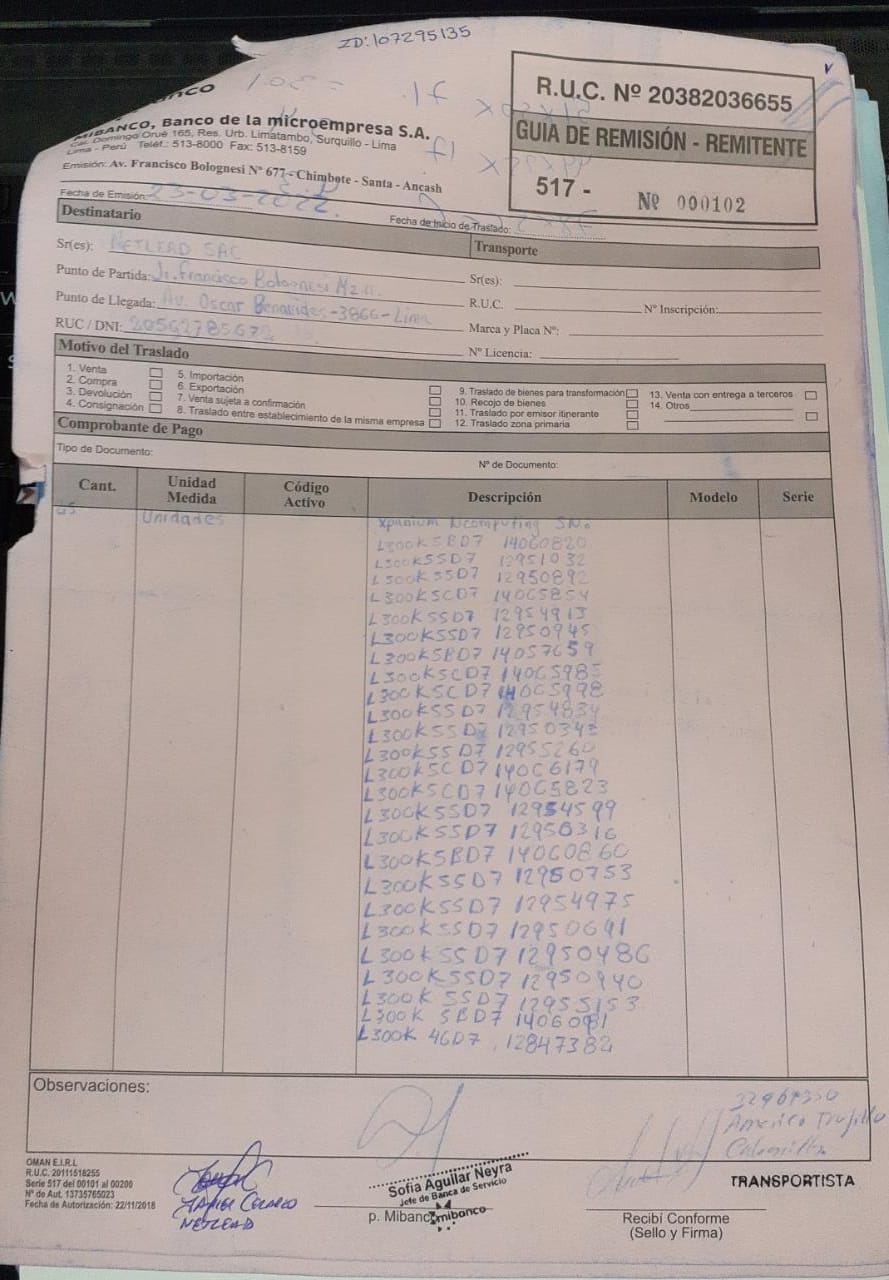 ZD:107295135
MIBANCO, Banco de la microempresa S.A.
Cal. Domingo Orué 165, Res. Urb. Limatambo, Surquillo - Lima
Lima - Perú Teléf.: 513-8000 Fax: 513-8159
Emisión: Av. Francisco Bolognesi Nº 677 - Chimbote - Santa - Ancash
R.U.C. Nº 20382036655
GUIA DE REMISIÓN - REMITENTE
517 - Nº 000102
Fecha de Emisión: 23-03-2022.
Fecha de Inicio de Traslado:
Destinatario
Transporte
Sr(es): NETLEAD SAC
Sr(es):
Punto de Partida: Jr. Francisco Bolognesi Mz
R.U.C. Nº Inscripción:
Punto de Llegada: Av. Oscar Benavides-3866-Lima
Marca y Placa Nº:
RUC / DNI:
Nº Licencia:
Motivo del Traslado
1. Venta
2. Compra
3. Devolución
4. Consignación
5. Importación
6. Exportación
7. Venta sujeta a confirmación
8. Traslado entre establecimiento de la misma empresa
9. Traslado de bienes para transformación
10. Recojo de bienes
11. Traslado por emisor itinerante
12. Traslado zona primaria
13. Venta con entrega a terceros
14. Otros
Comprobante de Pago
Tipo de Documento:
Nº de Documento:
Cant. Unidad Medida Código Activo Descripción Modelo Serie
Unidades Ncomputing SN.
L300K5BD7 14060820
L300K5SD7 12951032
L300K5SD7 12950892
L300K5CD7 14065854
L300K5SD7 12954913
L300K5SD7 12950945
L300K5BD7 14057659
L300K5CD7 14065985
L300K5CD7 14065998
L300K5SD7 12954834
L300K5SD7 12950343
L300K5SD7 12955260
L300K5CD7 14066179
L300K5CD7 14065823
L300K5SD7 12954599
L300K5SD7 12950316
L300K5BD7 14060860
L300K5SD7 12950753
L300K5SD7 12954975
L300K5SD7 12950691
L300K5SD7 12950486
L300K5SD7 12950940
L300K5SD7 12955153
L300K 5BD7 14060981
L300K 4GD7 12847382
Observaciones:
Americo Trujillo
OMAN E.I.R.L
R.U.C. 20111518255
Serie 517 del 00101 al 00200
Nº de Aut. 13735765023
Fecha de Autorización: 22/11/2018
NETLEAD
Sofia Aguilar Neyra
Jefe de Banca de Servicio
p. Mibanco
mibanco
TRANSPORTISTA
Recibí Conforme
(Sello y Firma)